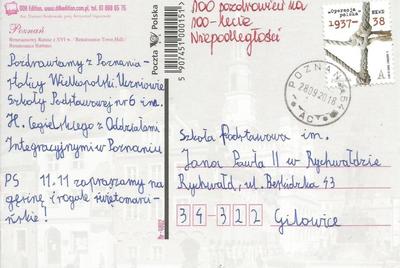 DDK Edition, www.ddkedition.com.pl tel. 61 868 65 76
Poznań
Renesansowy Ratusz z XVI w. · Renaissance Town Hall ·
Renaissance Rathaus
Poczta Polska
5907445000151
100 pozdrowień na
100-lecie
Niepodległości
"Operacja
polska"
NKWD
1937-38
A
POZNAŃ
28.09.2018
Pozdrawiamy z Poznania-
stolicy Wielkopolski Uczniowie
Szkoły Podstawowej nr 6 im.
H. Cegielskiego z Oddziałami
Integracyjnymi w Poznaniu
PS 11.11 zapraszamy na
gęsinę i rogale świętomarci-
ńskie!
Szkoła Podstawowa im.
Jana Pawła II w Rychwałdzie
Rychwałd, ul. Beskidzka 43
34-322 Gilowice